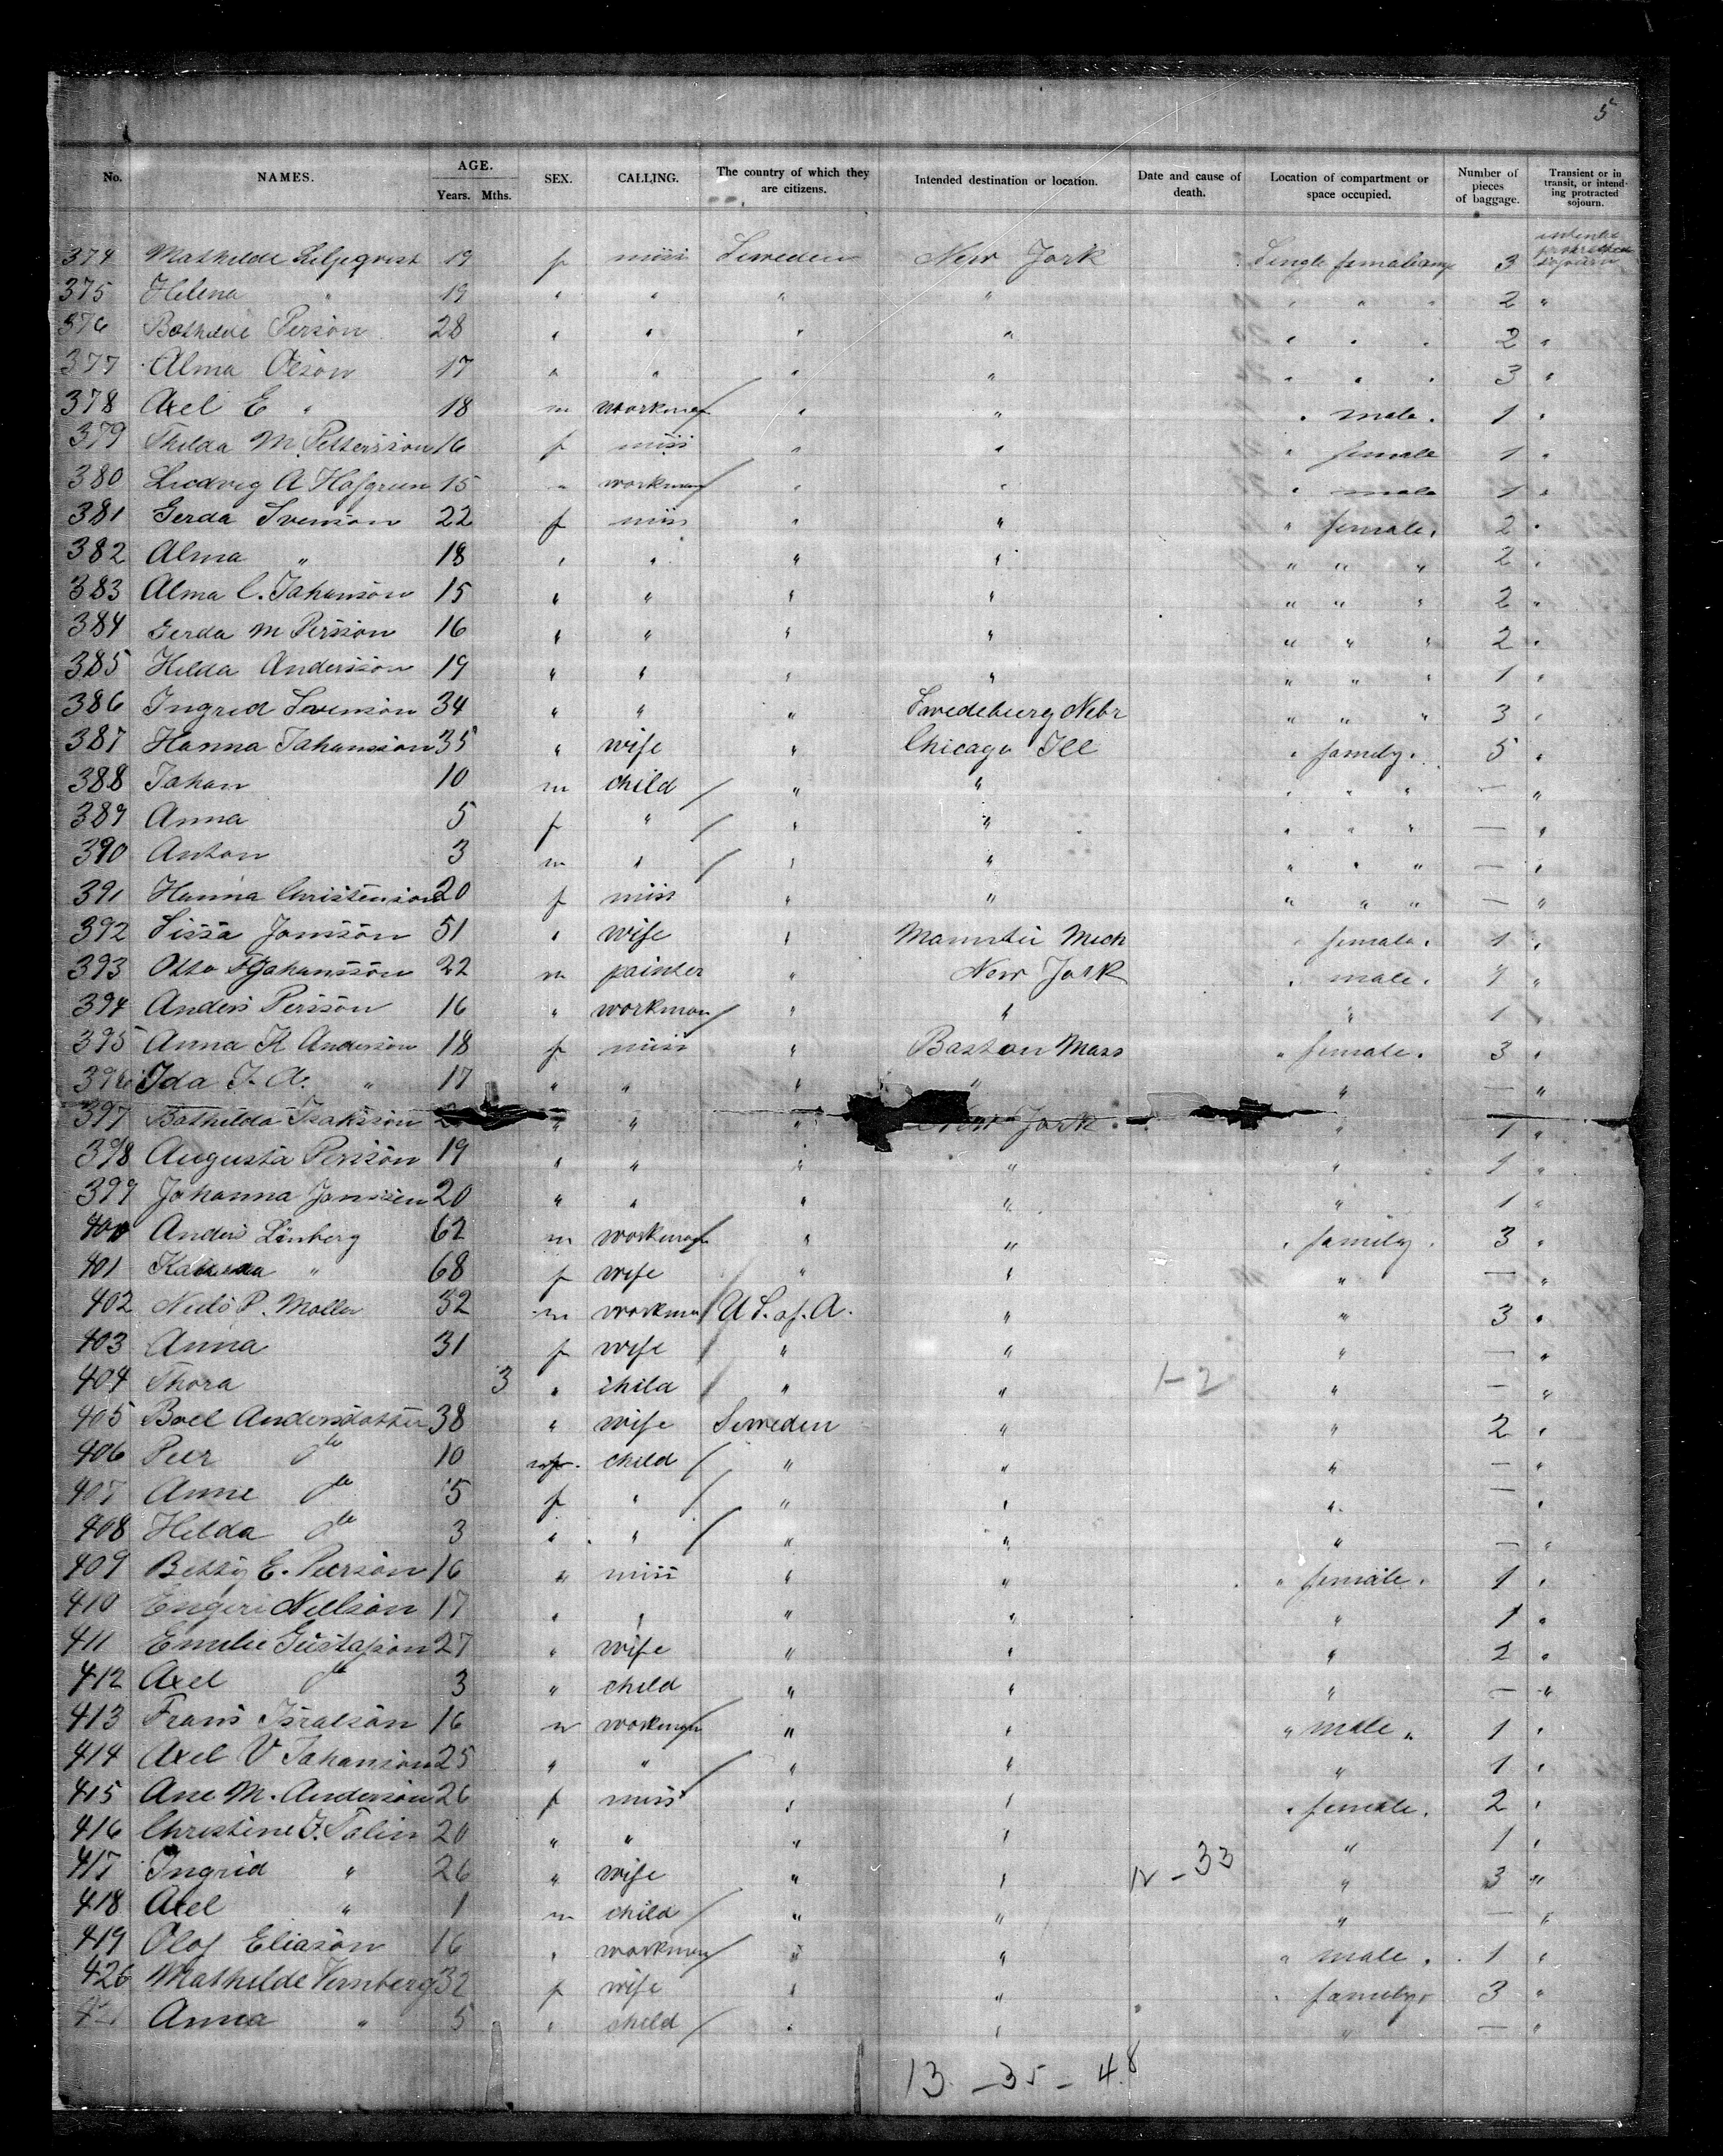 5
No. NAMES. AGE. Years. Mths. SEX. CALLING. The country of which they are citizens. Intended destination or location. Date and cause of death. Location of compartment or space occupied. Number of pieces of baggage. Transient or in transit, or intending protracted sojourn.
374 Mathilde Liljeqvist 19 f miss Sweden New York Single female 3 intends protracted sojourn
375 Helena " 19 " " " " " " " 2 "
376 Bothilde Person 28 " " " " " " " 2 "
377 Alma Olson 17 " " " " " " " 3 "
378 Axel E " 18 m workman " " " male " 1 "
379 Thilda M. Pettersson 16 f miss " " " female 1 "
380 Ludvig A Hofgren 15 " workman " " " male 1 "
381 Gerda Svenson 22 f miss " " " female " 2 "
382 Alma " 18 " " " " " " " 2 "
383 Alma C. Johanson 15 " " " " " " " 2 "
384 Gerda M Persson 16 " " " " " " " 2 "
385 Hilda Andersson 19 " " " " " " " 1 "
386 Ingrid Svenson 34 " " " Swedeburg Nebr " " " 3 "
387 Hanna Johansson 35 " wife " Chicago Ill " family " 5 "
388 Johan 10 m child " " " " " — "
389 Anna 5 f " " " " " " — "
390 Anton 3 m " " " " " " — "
391 Hanna Christenson 20 f miss " " " " " — "
392 Sissa Jonsson 51 " wife " Mannstee Mich " female " 1 "
393 Otto F Johansson 22 m painter " New York " male " 1 "
394 Anders Persson 16 " workman " " " 1 "
395 Anna K Anderson 18 f miss " Boston Mass " female " 3 "
396 Ida J. A. " 17 " " " " " — "
397 Bothilda Isaksson " " " New York " 1 "
398 Augusta Persson 19 " " " " " 1 "
399 Johanna Jonssen 20 " " " " " 1 "
400 Anders Linberg 62 m workman " " " family " 3 "
401 " 68 f wife " " " — "
402 Niels P. Moller 32 m workman U S. of. A. " " 3 "
403 Anna 31 f wife " " " — "
404 Thora 3 " child " " 1-2 " — "
405 Boel Andersdotter 38 " wife Sweden " " 2 "
406 Peer do 10 m child " " " — "
407 Anne do 5 f " " " " — "
408 Hilda do 3 " " " " " — "
409 Betty E. Peerson 16 " miss " " " female " 1 "
410 Engeri Nellson 17 " " " " " 1 "
411 Emilie Gustafson 27 " wife " " " 2 "
412 Axel do 3 " child " " " — "
413 Frans Isralson 16 m workman " " " male " 1 "
414 Axel V Johanson 25 " " " " " 1 "
415 Ane M. Anderson 26 f miss " " " female " 2 "
416 Christine J. Tolin 20 " " " " " 1 "
417 Ingrid " 26 " wife " " 12-33 " 3 "
418 Axel " 1 m child " " " — "
419 Olof Eliason 16 " workman " " " male " 1 "
420 Mathilde Vernberg 32 f wife " " " family " 3 "
421 Anna " 5 " child " " " — "
13 - 35 - 48